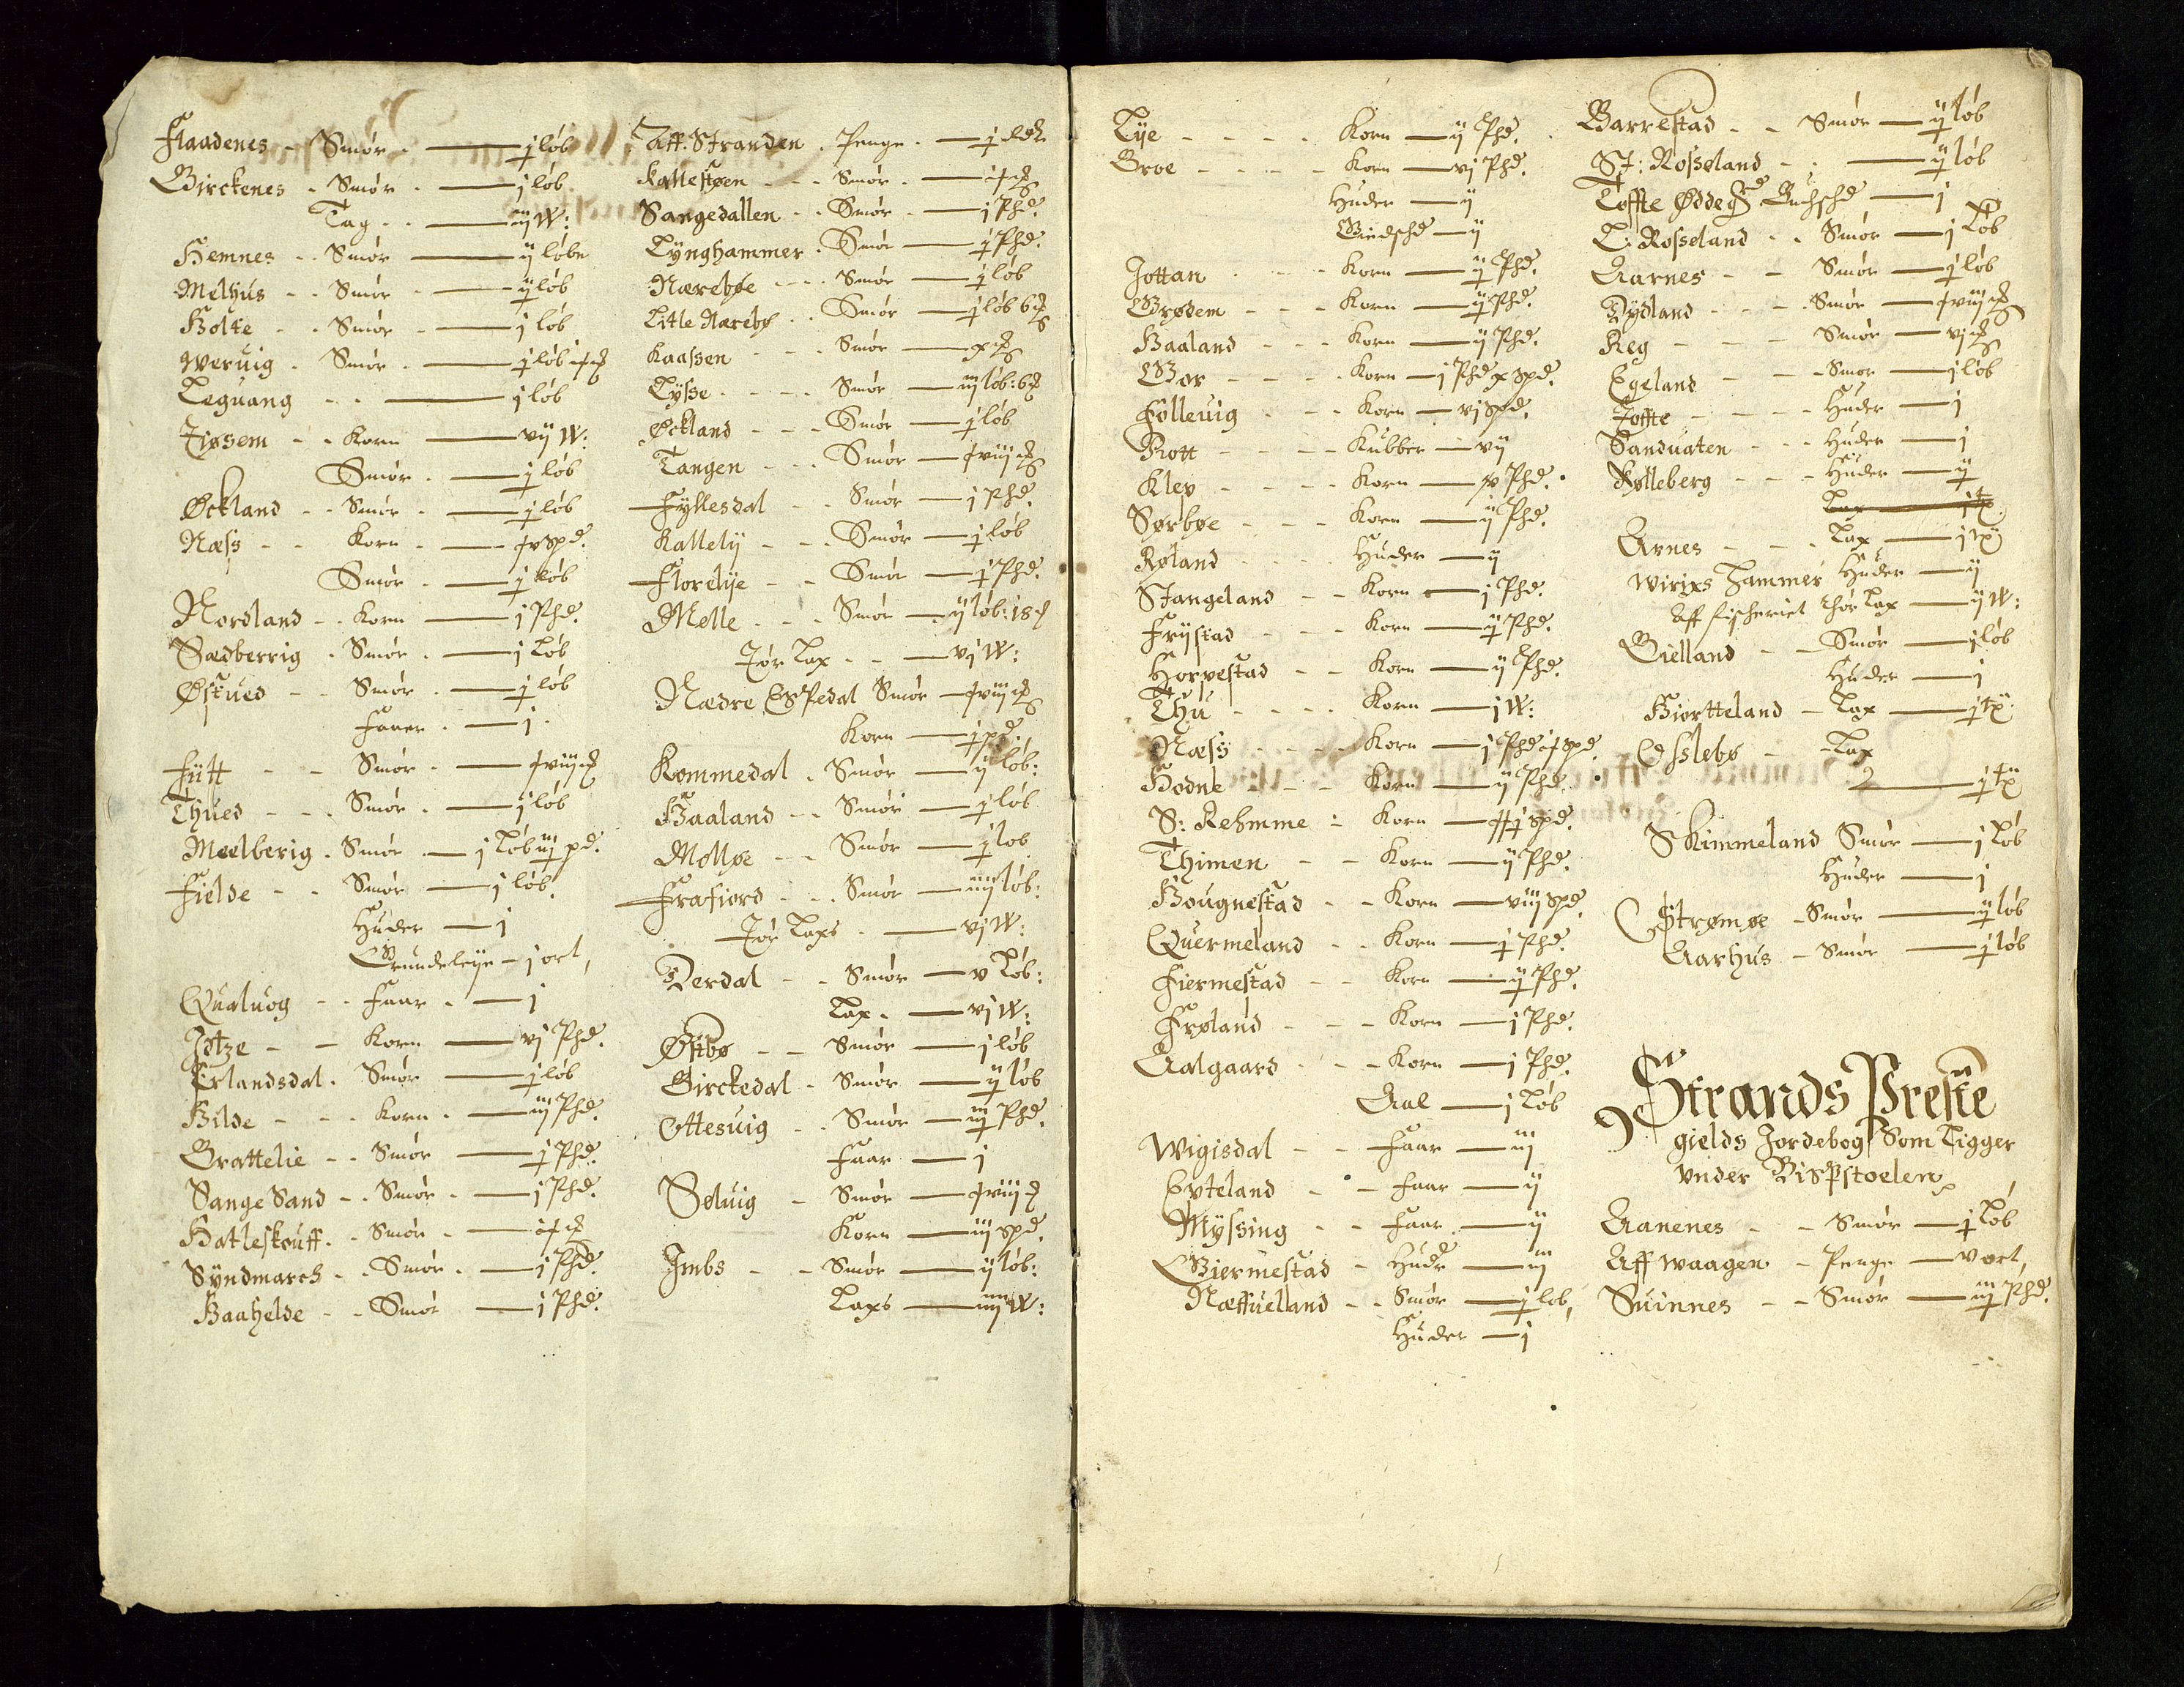 Flaadenes - Smør - j løb
Birckenes - Smør - j løb
Tag - iij W:
Hemnes - Smør - ij løbe
Melhus - Smør - ij løb
Holte - Smør - j løb
Weruig - Smør - j løb
Leguang - j løb
Tiøsem - Korn - vij W:
Smør - j løb
Øckland - Smør - j løb
Næss - Korn - spd.
Smør - j løb
Nordland - Korn - j Phd.
Sædberrig - Smør - j Løb
Østued - Smør - j løb
Faaer - j
Fütt - Smør -
Thued - Smør - j løb
Meelberig - Smør - j Løb iij pd.
Fielde - Smør - j løb
Huder - j
Grundeleije - j ort,
Qualuog - Faar - j
Jdtze - Korn - vj Phd.
Erlandsdal - Smør - j løb
Hilde - Korn - iij Phd.
Brattelie - Smør - j Phd.
Sange Sand - Smør - j Phd.
Hatleskouff - Smør -
Syndmarch - Smør - j Phd.
Baahelde - Smør - j Phd.
Aff. Stranden - Penge - j
Kallestøen - Smør -
Sangedallen - Smør - j Phd.
Lynghammer - Smør - j Phd.
Nærebøe - Smør - j løb
Litle Nærebø - Smør - j løb 6
Kaassen - Smør -
Lysse - Smør - iij løb: 6
Øckland - Smør - j løb
Tangen - Smør -
Fyllesdal - Smør - j Phd.
Kallelij - Smør - j løb
Florelije - Smør - j Phd.
Melle - Smør - ij løb: 18
Tør Lax - vj W:
Nædre Espedal Smør -
Korn - j pd.
Kommedal - Smør - ij løb:
Haaland - Smør - j løb
Molløe - Smør - j løb
Frafiord - Smør - iiij løb:
Tør Laxs - vj W:
Derdal - Smør - v Løb:
Lax - vj W:
Østbø - Smør - j løb
Birckedal - Smør - ij løb
Ottesuig - Smør - iij Phd.
Faar - j
Søluig - Smør -
Korn - iij spd.
Jmbs - Smør - ij løb:
Laxs - iiij W:
Lye - Korn - ij Phd.
Broe - Korn - vj Phd.
Huder - ij
Giedschd - ij
Jottan - Korn - ij Phd.
Brødem - Korn - ij Phd.
Haaland - Korn - ij Phd.
Bor - Korn - j Phd x spd.
Følleuig - Korn - vj spd.
Rott - Kubber - vij
Klep - Korn - Phd.
Sørbøe - Korn - ij Phd.
Røland - Huder - ij
Stangeland - Korn - j Phd.
Frijstad - Korn - ij Phd.
Horpestad - Korn - ij Phd.
Thu - Korn - j W:
Næss - Korn - j Phd spd.
Hodne - Korn - ij Phd.
S: Rehmme - Korn - spd.
Thimen - Korn - ij Phd.
Hougnestad - Korn - viij spd.
Quermeland - Korn - j Phd.
Fiermestad - Korn - ij Phd.
Frøland - Korn - j Phd.
Aalgaard - Korn - j Phd.
Aal - j Løb
Wigisdal - Faar - iij
Epteland - Faar - ij
Myssing - Faar - ij
Biermestad - Hudr - iij
Næffuelland - Smør - j løb,
Huder - j
Barrestad - Smør - ij løb
St: Rosseland - ij løb
Toffte Øddeg Buchschd - j
L: Rosseland - Smør - j Løb
Aarnes - Smør - j løb
Dydland - Smør -
Reg - Smør - vj
Egeland - Smør - j løb
Toffte - Huder - j
Sanduaten - Huder - j
Rølleberg - Huder - ij
Lax - j tx
Arnes - Lax - j tx
Wirixs Hammer Huder - ij
Aff fischeriet thør Lax - ij W:
Gielland - Smør - j løb
Huder - j
Hiortteland - Lax - j tx
Osslebø - Lax
2 - j tx
Skimmeland Smør - j Løb
Huder - j
Strømøe - Smør - ij løb
Aarhus - Smør - j løb
Strands Preste
gields Jordebog Som Ligger
vnder Bispstoelen
Aanenes - Smør - j Løb
Aff waagen - Penge - v ort,
Suinnes - Smør - iij Phd.